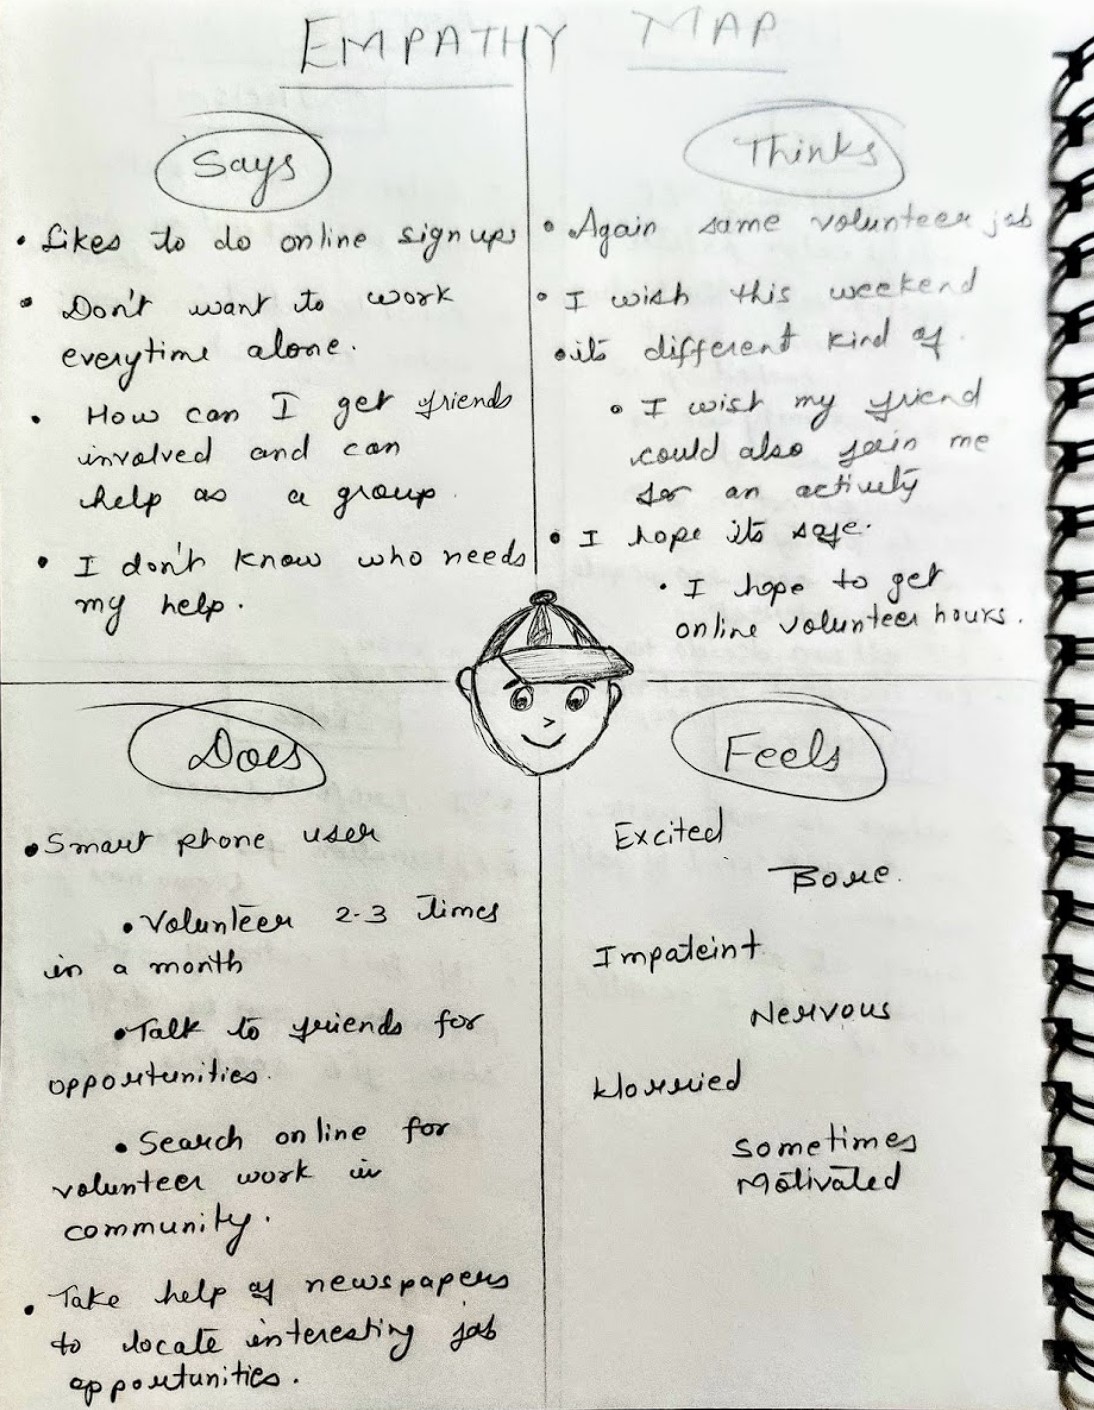 EMPATHY MAP
Says
• Likes to do online signups
• Don't want to work
everytime alone.
• How can I get friends
involved and can
help as a group.
• I don't know who needs
my help.
Thinks
• Again same volunteer job
• I wish this weekend
• its different kind of.
• I wish my friend
could also join me
for an activity
• I hope its safe.
• I hope to get
online volunteer hours.
Does
• Smart phone user
• Volunteer 2-3 times
in a month
• Talk to friends for
opportunities.
• Search online for
volunteer work in
community.
• Take help of newspapers
to locate interesting job
opportunities.
Feels
Excited
Bore.
Impateint
Nervous
Worried
Sometimes
Motivated